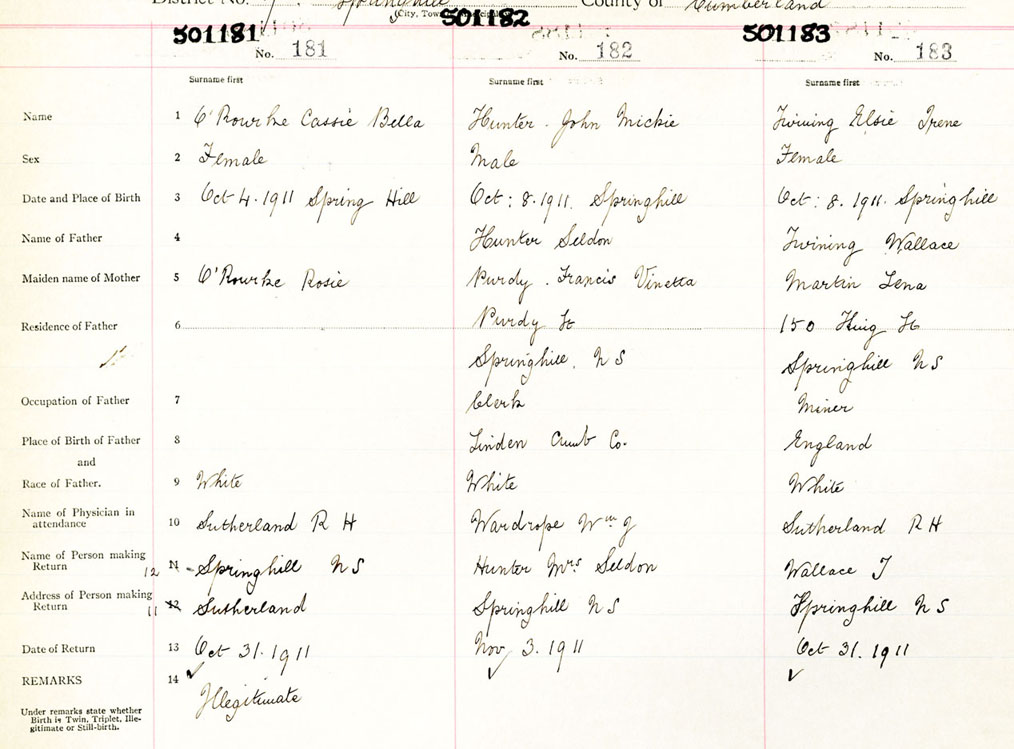 District No. 7. Springhill County of Cumberland
(City, Town
501181 501182 501183
No. 181 No. 182 No. 183
Surname first Surname first Surname first
Name 1 O'Rourke Cassie Bella Hunter . John Mickie Twining Elsie Irene
Sex 2 Female Male Female
Date and Place of Birth 3 Oct 4. 1911 Spring Hill Oct: 8. 1911. Springhill Oct: 8. 1911. Springhill
Name of Father 4 Hunter Seldon Twining Wallace
Maiden name of Mother 5 O'Rourke Rosie Purdy . Francis Vinetta Martin Lena
Residence of Father 6 Purdy St 150 King St
Springhill. N S Springhill N S
Occupation of Father 7 Clerk Miner
Place of Birth of Father 8 Linden Cumb Co. England
and
Race of Father. 9 White White White
Name of Physician in
attendance 10 Sutherland R H Wardrope Wm G Sutherland R H
Name of Person making
Return 12 11 - Springhill N S Hunter Mrs Seldon Wallace T
Address of Person making
Return 11 12 Sutherland Springhill N S Springhill N S
Date of Return 13 Oct 31. 1911 Nov 3. 1911 Oct 31. 1911
REMARKS 14 ✓ ✓ ✓
Illegitimate
Under remarks state whether
Birth is Twin, Triplet, Ille-
gitimate or Still-birth.